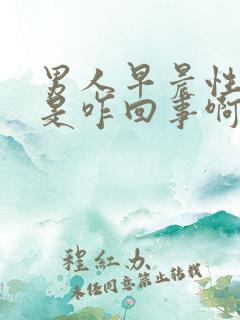 男人早晨性
是咋回事啊
程红办
未经同意禁止转载